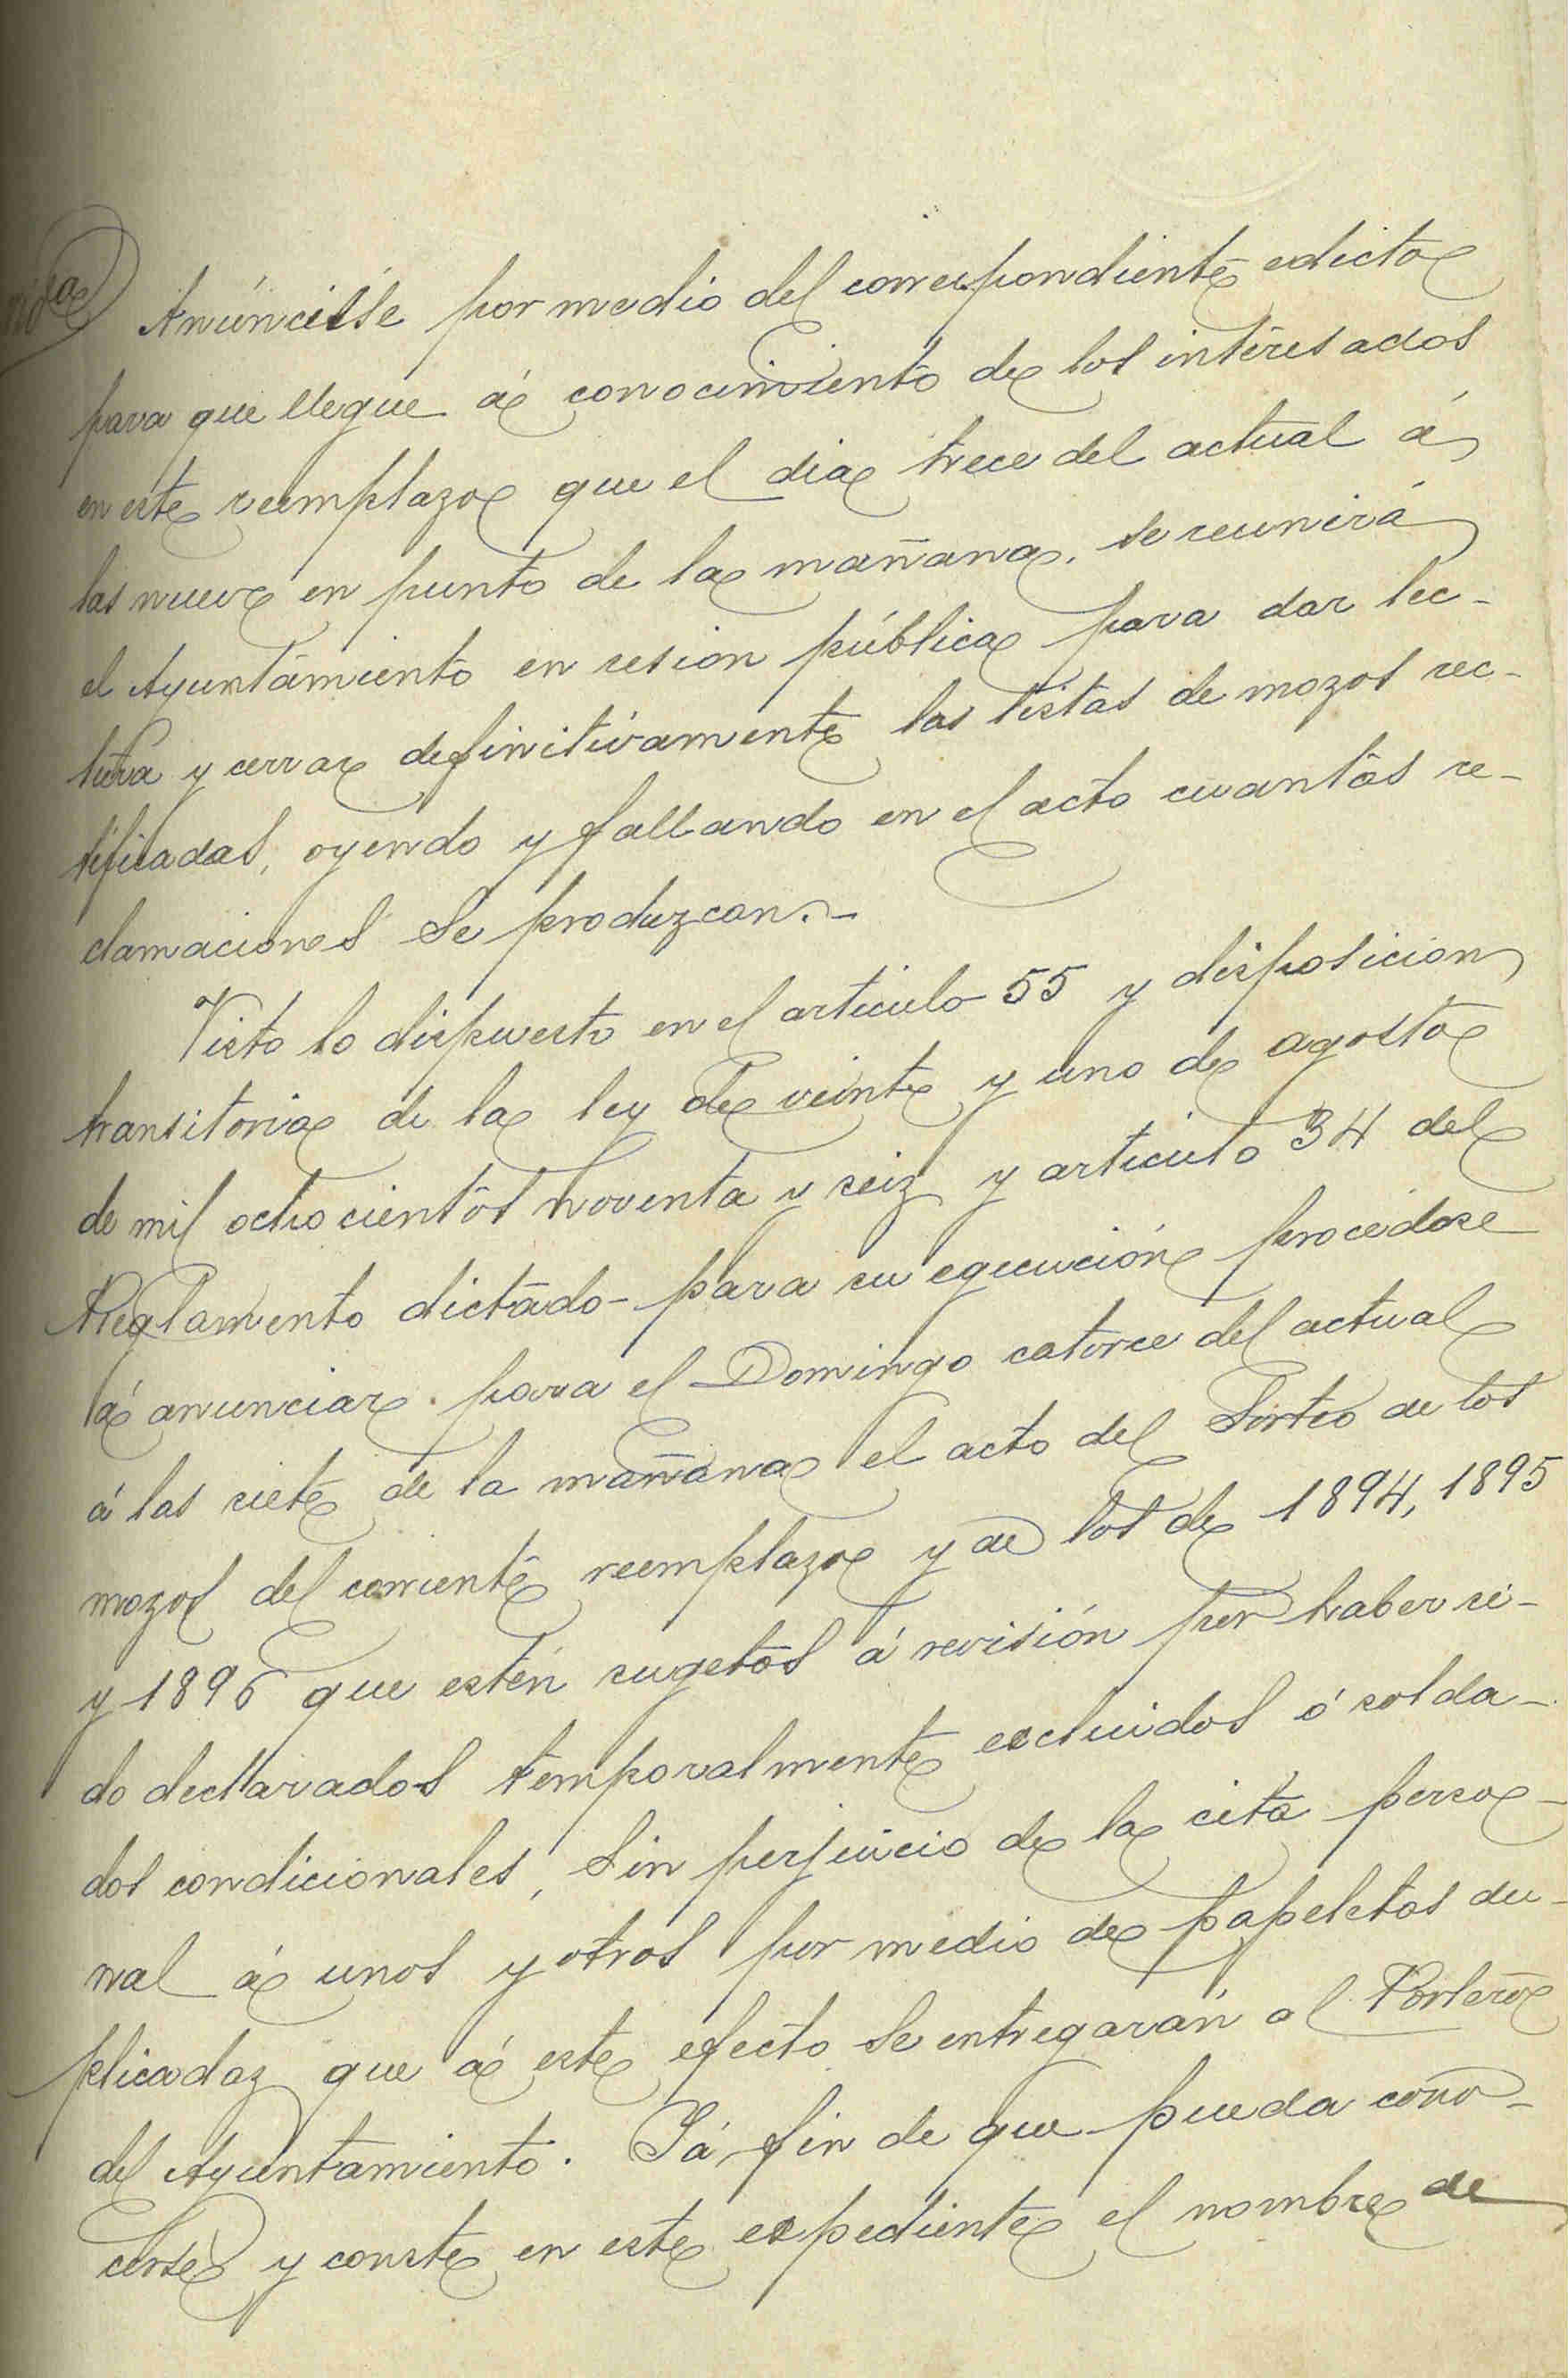 Anúnciese por medio del correspondiente edicto
para que llegue á conocimiento de los interesados
en este reemplazo que el dia trece del actual á
las nueve en punto de la mañana, se reunirá
el Ayuntamiento en sesion pública para dar lec-
tura y cerrar definitivamente las listas de mozos rec-
tificadas, oyendo y fallando en el acto cuantas re-
clamaciones se produzcan.-
Visto lo dispuesto en el articulo 55 y disposicion
transitoria de la ley de veinte y uno de agosto
de mil ochocientos noventa y seiz y articulo 34 del
Reglamento dictado para su egecución procedase
á anunciar para el Domingo catorce del actual
á las siete de la mañana el acto del Sorteo de los
mozos del corriente reemplazo y de los de 1894, 1895
y 1896 que estén sugetos á revisión por haber si-
do declarados temporalmente escluidos ó solda-
dos condicionales, sin perjuicio de la cita perso-
nal á unos y otros por medio de papeletas du-
plicadaz que á este efecto se entregarán al Portero
del Ayuntamiento. Y á fin de que pueda cono-
cerse y conste en este expediente el nombre de